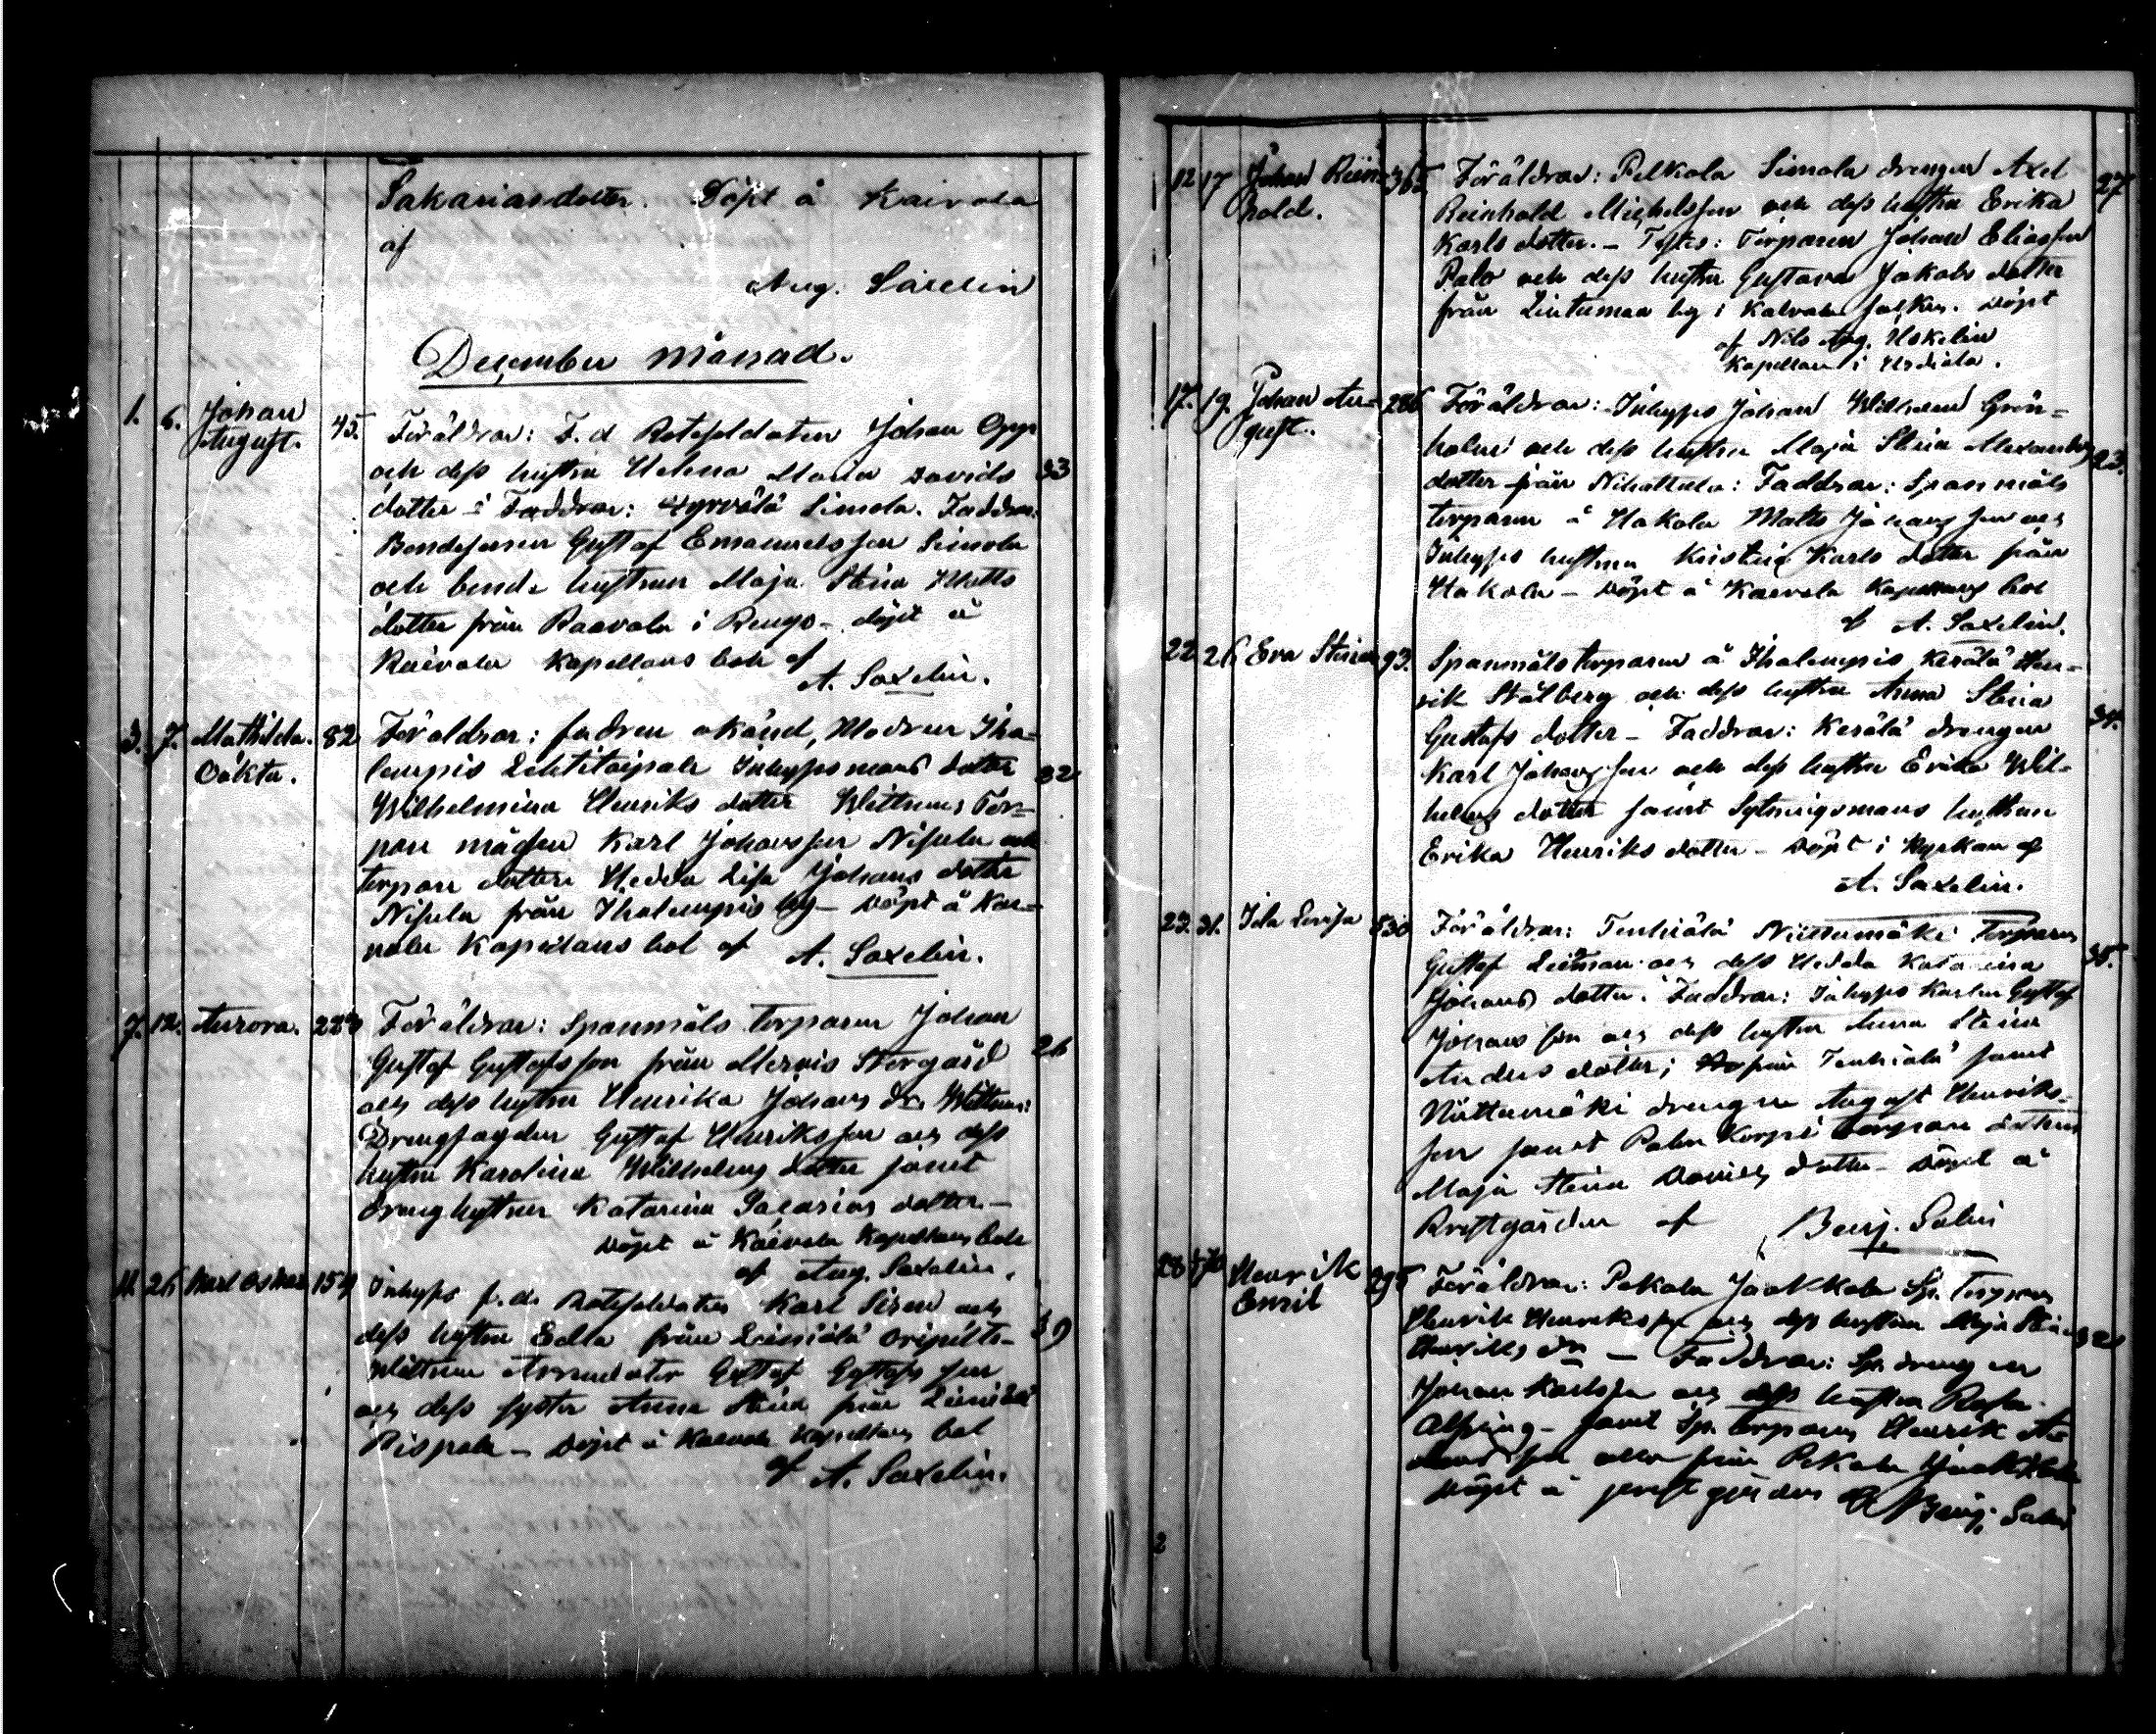 Sakariasdotter. Döpt å Kairola
af
Aug. Saxelin
December månad.
1. 6. Johan August. 45. Föräldrar: F. d Rotesoldaten Johan Opp
och dess hustru Helena Maria Davids 33
dotter i Simola. Faddrar:
Bondesonen Gustaf Emanuelsson Simola
och bonde hustrun Maja Stina Matts
dotter från Raavola i Rengo - döpt å
Kaivola Kapellans bol af
A. Saxelin.
3. 7. Mathilda. 82 Föräldrar: fadren okänd, Modren Iha-
Oäkta. lempis Lehtitaipale Inhyses mans dotter 32
Wilhelmina Henriks dotter Wittnen: Tor-
pare mågen Karl Johansson Nisula och
torpare dottern Hedda Lisa Johans dotter
Nisula från Ihalempis by - Döpt å Kai-
vola Kapellans bol af A. Saxelin.
7. 12. Aurora. Föräldrar: Spanmåls torparen Johan
Gustaf Gustafsson från Mervis Storgård 26
och dess hustru Henrika Johans dr. Wittnen:
Drengfogden Gustaf Henriksson och dess
hustru Karolina Wilhelms dotter samt
Dreng hustrun Katarina Sacarias dotter -
Döpt å Kaivola Kapellans bol
af Aug. Saxelin.
11. 26 Karl Oskar 154 Inhyses f.d. Rotesoldaten Karl Siren och
dess hustru Edla från 39
Wittnen Arrendator Gustaf Gustafsson
och dess syster Anna Stina från
Rispala - Döpt å Kaivola Kapellans bol
af A. Saxelin.
12 17 Johan Rein- 365 Föräldrar: Pelkola Simola drengen Axel 27
hold. Reinhold Michelsson och dess hustru Erika
Karls dotter. - Testes: Torparen Johan Eliasson
Palo och dess hustru Gustava Jakobs dotter
från Lintumaa by i Kalvola socken. Döpt
af Nils Aug. Uskelin
Kapellan i Urdiala.
17. 19. Johan Au- 286 Föräldrar: Inhyses Johan Wilhelm Grön-
gust. holm och dess hustru Maja Stina Alexanders 23.
dotter från Nihattula: Faddrar: Spanmåls
torparen å Hakola Matts Johansson och
Inhyses hustrun Kristina Karls dotter från
Hakola - Döpt å Kaivola Kapellans bol
af A. Saxelin.
22 26 Eva Stina 93. Spanmåls torparen å Ihalempis Kerälä Hen-
rik Stålberg och dess hustru Anna Stina
Gustafs dotter - Faddrar: Kerälä drengen 34.
Karl Johansson och dess hustru Erika Wil-
helms dotter samt Sytningsmans hustrun
Erika Henriks dotter - Döpt i Kyrkan af
A. Saxelin.
23. 31. Ida Lovisa 530 Föräldrar: Tenhiälä Niittumäki Torparen
Gustaf och dess Hedda Katarina 35.
Johans dotter. Faddrar: Inhyses Karlen Gustaf
Johansson och dess hustru Anna Stina
Anders dotter; från Tenhiälä samt
Niittumäki drengen August Henriks-
son samt Palon Korpi torpare dottern
Maja Stina Davids dotter - Döpt å
Prestgården af Benj. Salin
28 Henrik 295 Föräldrar: Pekola Jaakkola Sp. Torparen
Emil Henrik Henriksson och dess hustru Maja Stina 32
Henriks dr - Faddrar: Sp. drengen
Johan Karlsson och dess hustru Rosa
- samt Sp. torparen Henrik
alla från Pekola Jaakkola
Döpt å prestgården af Benj. Salin
2